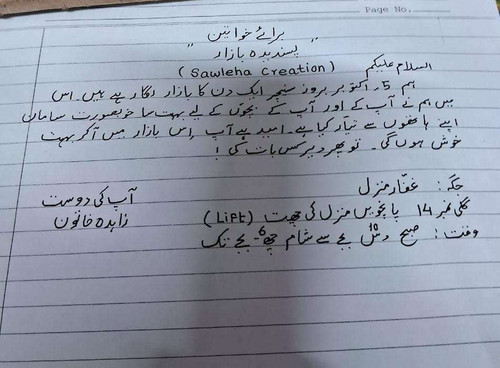 Page No.
برائے خواتین
" پسندیدہ بازار "
(Sawleha Creation)
السلام علیکم
ہم 5۔ اکتوبر بروز سنیچر ایک دن کا بازار لگا رہے ہیں۔ اس
میں ہم نے آپ کے اور آپ کے بچوں کے لیے بہت سا خوبصورت سامان
اپنے ہاتھوں سے تیار کیا ہے۔ امید ہے آپ اِس بازار میں آ کر بہت
خوش ہوں گی۔ تو پھر دیر کس بات کی !
جگہ : غفّار منزل
گلی نمبر 14 پانچویں منزل کی چھت (Lift)
وقت : صبح دس 10 بجے سے شام چھ 6 بجے تک
آپ کی دوست
زاہدہ خاتون